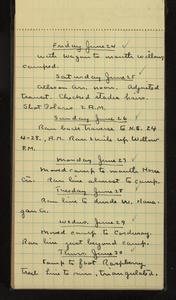 Friday June 24
with wagon to mouth willow
camped.
Saturday June 25
Allison arr. noon. Adjusted
transit. Checked stadia hairs.
Shot Polaris. 2 A.M.
Sunday June 26
Ran back traverse to N.E. 24
4-25, A.M. Ran smile up Willow
P.M.
Monday June 27
Moved camp to mouth Horse
Cr. Ran line almost to camp.
Tuesday June 28
Ran line to divide w.
Cr.
Wednes. June 29
Moved camp to Corduroy.
Ran line just beyond camp.
Thurs. June 30
Camp to foot Raspberry
Trail line to run, triangulated.